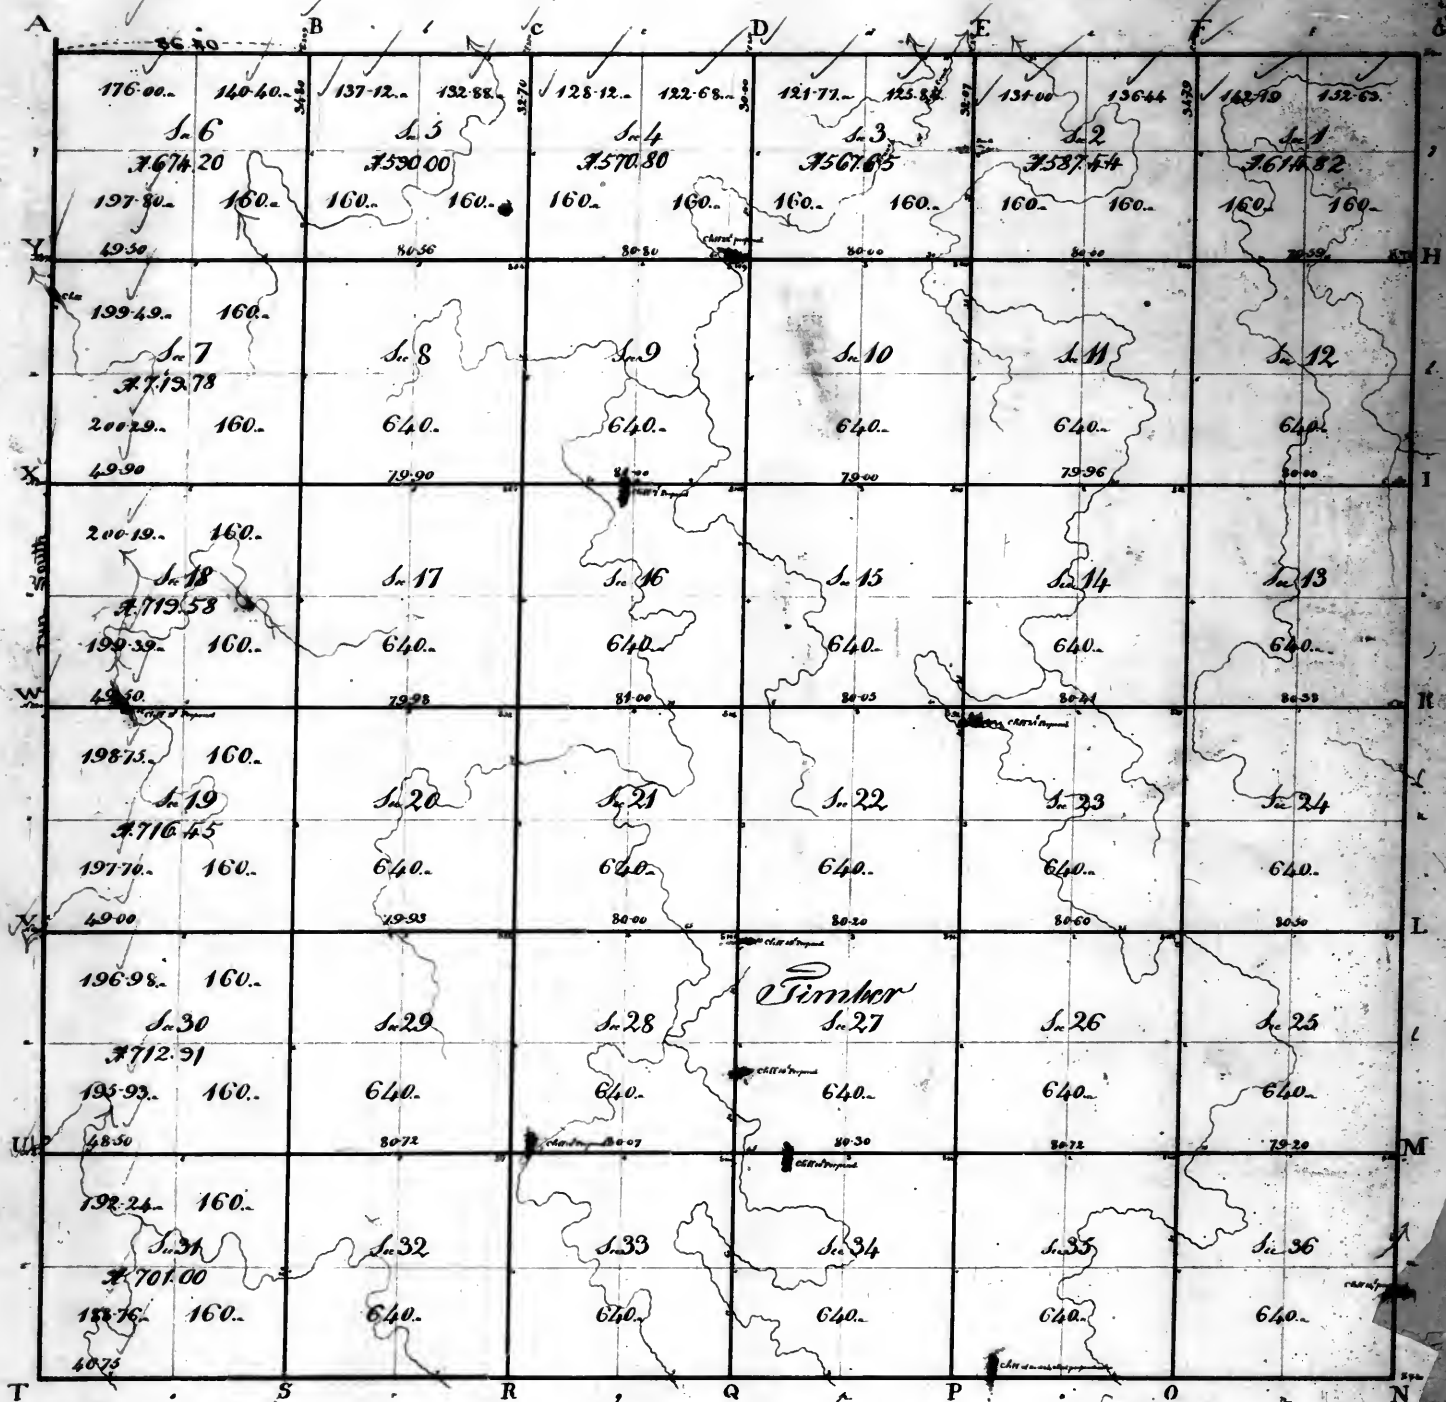 A B C D E F
86.80
176.00 140.40 137.12 132.88 128.12 122.68 121.77 131.00 136.44 142.19 152.63
34.80 32.70 30.00 32.07 34.20
Sec 6 Sec 5 Sec 4 Sec 3 Sec 2 Sec 1
A. 674.20 A. 590.00 A. 570.80 A. 567.65 A. 587.44 A. 614.82
197.80 160 160 160 160 160 160 160 160 160 160 160
Y 49.50 80.56 80.80 80.00 80.40 79.59 H
199.49 160
Sec 7 Sec 8 Sec 9 Sec 10 Sec 11 Sec 12
A. 719.78
200.29 160 640 640 640 640 640
X 49.90 79.90 81.00 79.00 79.96 80.00 I
200.19 160
South
Sec 18 Sec 17 Sec 16 Sec 15 Sec 14 Sec 13
A. 719.58
199.39 160 640 640 640 640 640
W 49.50 79.98 81.00 80.05 80.41 80.38
198.75 160
Sec 19 Sec 20 Sec 21 Sec 22 Sec 23 Sec 24
A. 716.45
197.70 160 640 640 640 640 640
V 49.00 79.93 80.00 80.20 80.60 80.50 L
196.98 160
Timber
Sec 30 Sec 29 Sec 28 Sec 27 Sec 26 Sec 25
A. 712.91
195.93 160 640 640 640 640 640
U 48.50 80.72 80.07 80.30 80.72 79.20 M
192.24 160
Sec 31 Sec 32 Sec 33 Sec 34 Sec 35 Sec 36
A. 701.00
188.76 160 640 640 640 640 640
T S R Q P O N